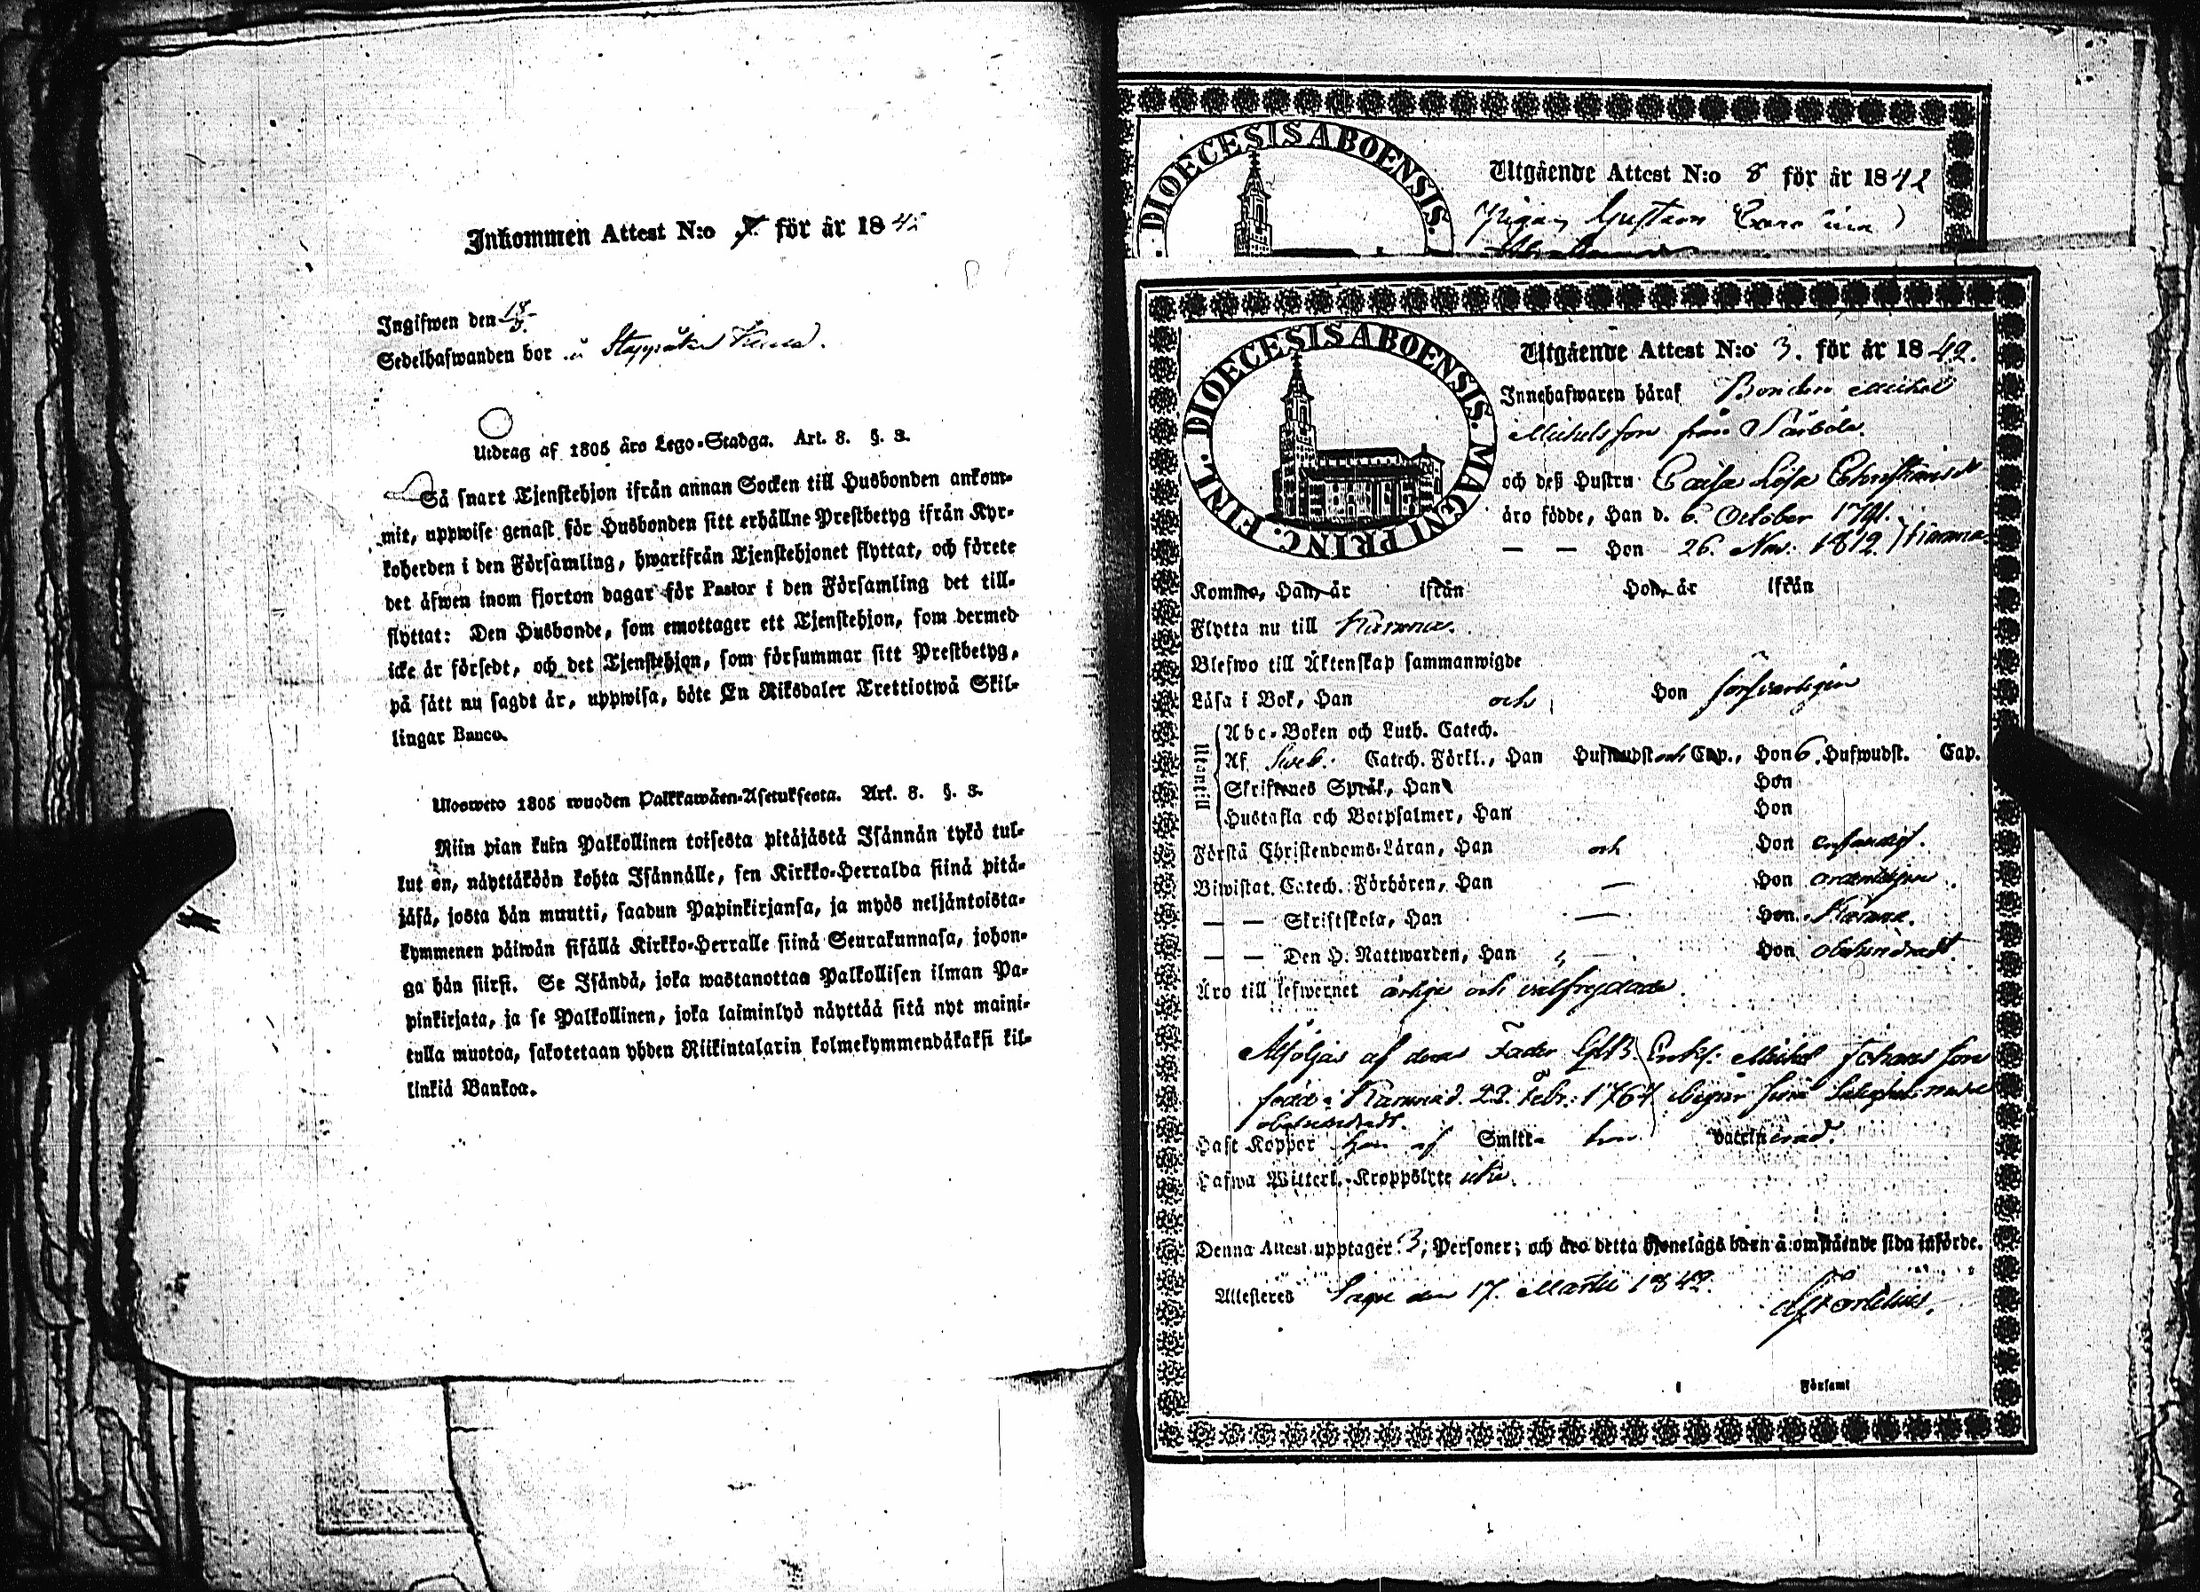 Inkommen Attest N:o 7. för år 1842
Ingifwen den 18/3.
Sedelhafwanden bor i
Utdrag af 1805 års Lego-Stadga. Art. 8. §. 3.
Så snart Tjenstehjon ifrån annan Socken till Husbonden ankom-
mit, uppwise genast för Husbonden sitt erhållne Prestbetyg ifrån Kyr-
koherden i den Församling, hwarifrån Tjenstehjonet flyttat, och förete
det äfwen inom fjorton dagar för Pastor i den Församling det till-
flyttat: Den Husbonde, som emottager ett Tjenstehjon, som dermed
icke är försedt, och det Tjenstehjon, som försummar sitt Prestbetyg,
på sätt nu sagdt är, uppwisa, böte En Riksdaler Trettiotwå Skil-
lingar Banco.
Uloswето 1805 wuoden Palkkawäen-Asetuksesta. Art. 8. §. 3.
Niin pian kuin Palkollinen toisesta pitäjästä Isännän tykö tul-
lut on, näyttäköön kohta Isännälle, sen Kirkko-Herralda siinä pitä-
jäsä, josta hän muutti, saadun Papinkirjansa, ja myös neljäntoista-
kymmenen päiwän sisällä Kirkko-Herralle siinä Seurakunnasa, johon-
ga hän siirsi. Se Isändä, joka wastanottaa Palkollisen ilman Pa-
pinkirjata, ja se Palkollinen, joka laiminlyö näyttää sitä nyt maini-
tulla muotoa, sakotetaan yhden Riikintalarin kolmekymmendäkaksi kil-
linkiä Bankoa.
DIOECESIS ABOENSIS.
Utgående Attest N:o 8 för år 1842
Pigan Gustava Carolina
DIOECESIS ABOENSIS. MAGNI PRINC. FINL.
Utgående Attest N:o 3. för år 1842.
Innehafwaren häraf Bonden Michel
Michelsson från Särböle
och deß Hustru Caisa Lisa
äro födde, Han d. 6. October 1791.
— — Hon 26. Nov. 1812. Kimma
Kommo, Han, år ifrån Hon, år ifrån
Flytta nu till Karuna.
Blefwo till Äktenskap sammanwigde
Läsa i Bok, Han och Hon försvarligen
Utantill
Abc-Boken och Luth. Catech.
Af Sveb. Catech. Förkl., Han Hufwudst och Cap., Hon 6. Hufwudst. Cap.
Skriftenes Språk, Han Hon
Hustafla och Botpsalmer, Han Hon
Förstå Christendoms-Läran, Han och Hon
Biwistat Catech. Förhören, Han — Hon ordentligen.
— — Skriftskola, Han — Hon
— — Den H. Nattwarden, Han — Hon obehindradt.
Äro till lefwernet ärlige och välfrejdade.
Åtföljas af deras Fader Enkl. Michel Johansson
född i Karuna d. 22. Febr. 1767 begår sina
obehindradt.
Haft Koppor han af Smitta hon vaccinerad.
Hafwa Witterl. Kroppslyte icke.
Denna Attest upptager 3, Personer; och äro detta hjonelags barn å omstående sida införde.
Attesteras Sagu den 17. Martii 1842.
Församl